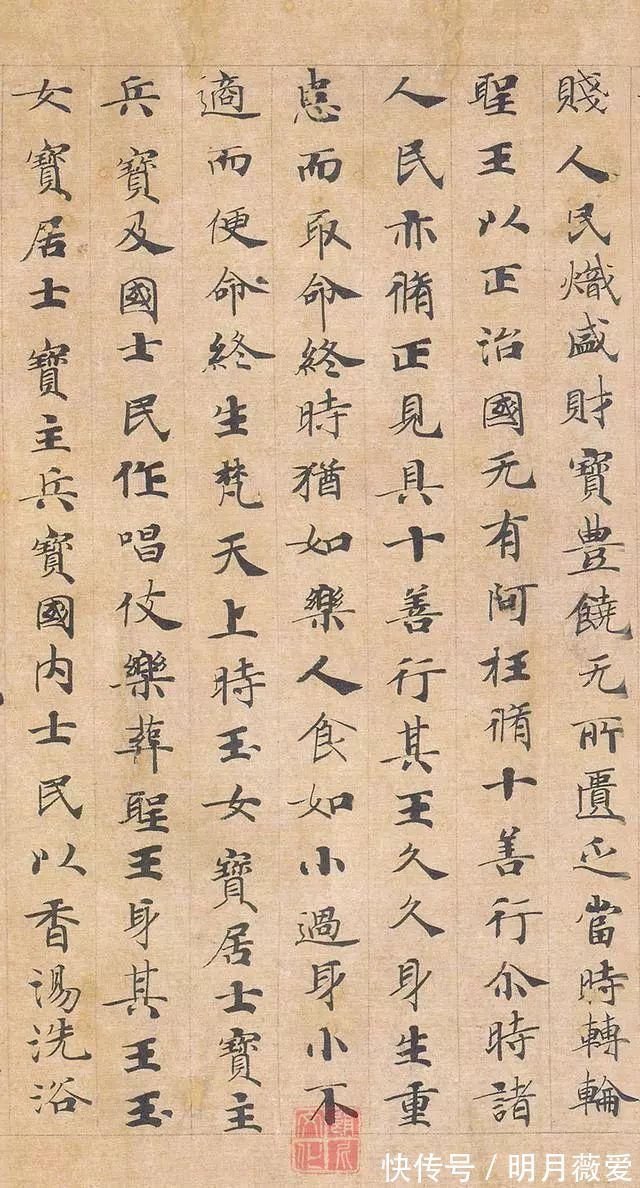 賤人民熾盛財寶豊饒无所匱乏當時轉輪
聖王以正治國无有阿枉脩十善行尒時諸
人民亦脩正見具十善行其王久久身生重
患而取命終時猶如樂人食如小過身小不
適而便命終生梵天上時玉女寶居士寶主
兵寶及國士民作唱伎樂葬聖王身其王玉
女寶居士寶主兵寶國内士民以香湯洗浴
快传号／明月薇爱